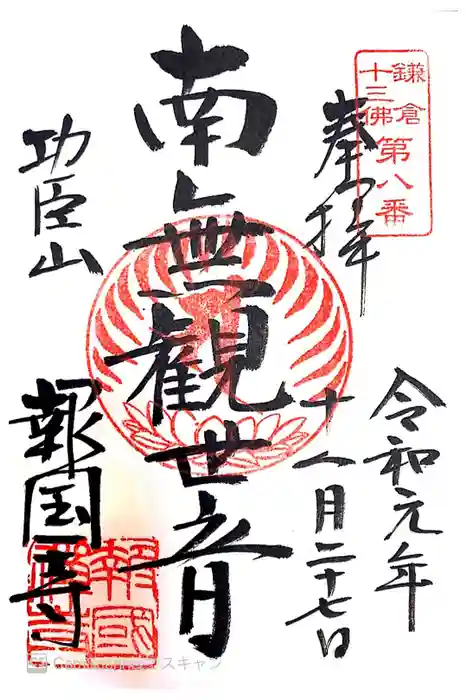 鎌倉
十三佛第八番
奉拝
令和元年
十一月二十七日
南無観世音
功臣山
報国寺